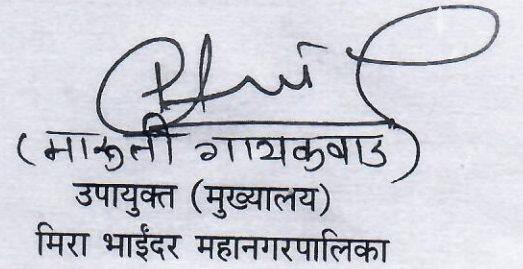 (मारुती गायकवाड)
उपायुक्त (मुख्यालय)
मिरा भाईंदर महानगरपालिका